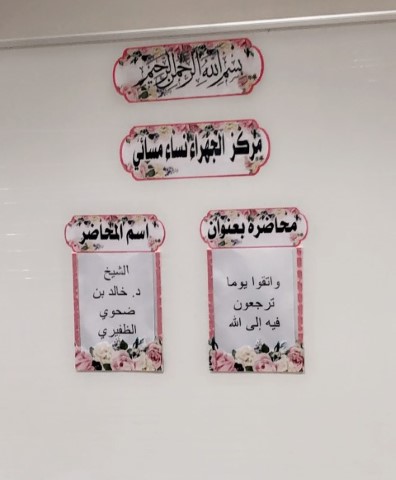 بسم الله الرحمن الرحيم
مركز الجهراء نساء مسائي
محاضرة بعنوان
واتقوا يوما
ترجعون
فيه إلى الله
اسم المحاضر
الشيخ
د. خالد بن
ضحوي
الظفيري